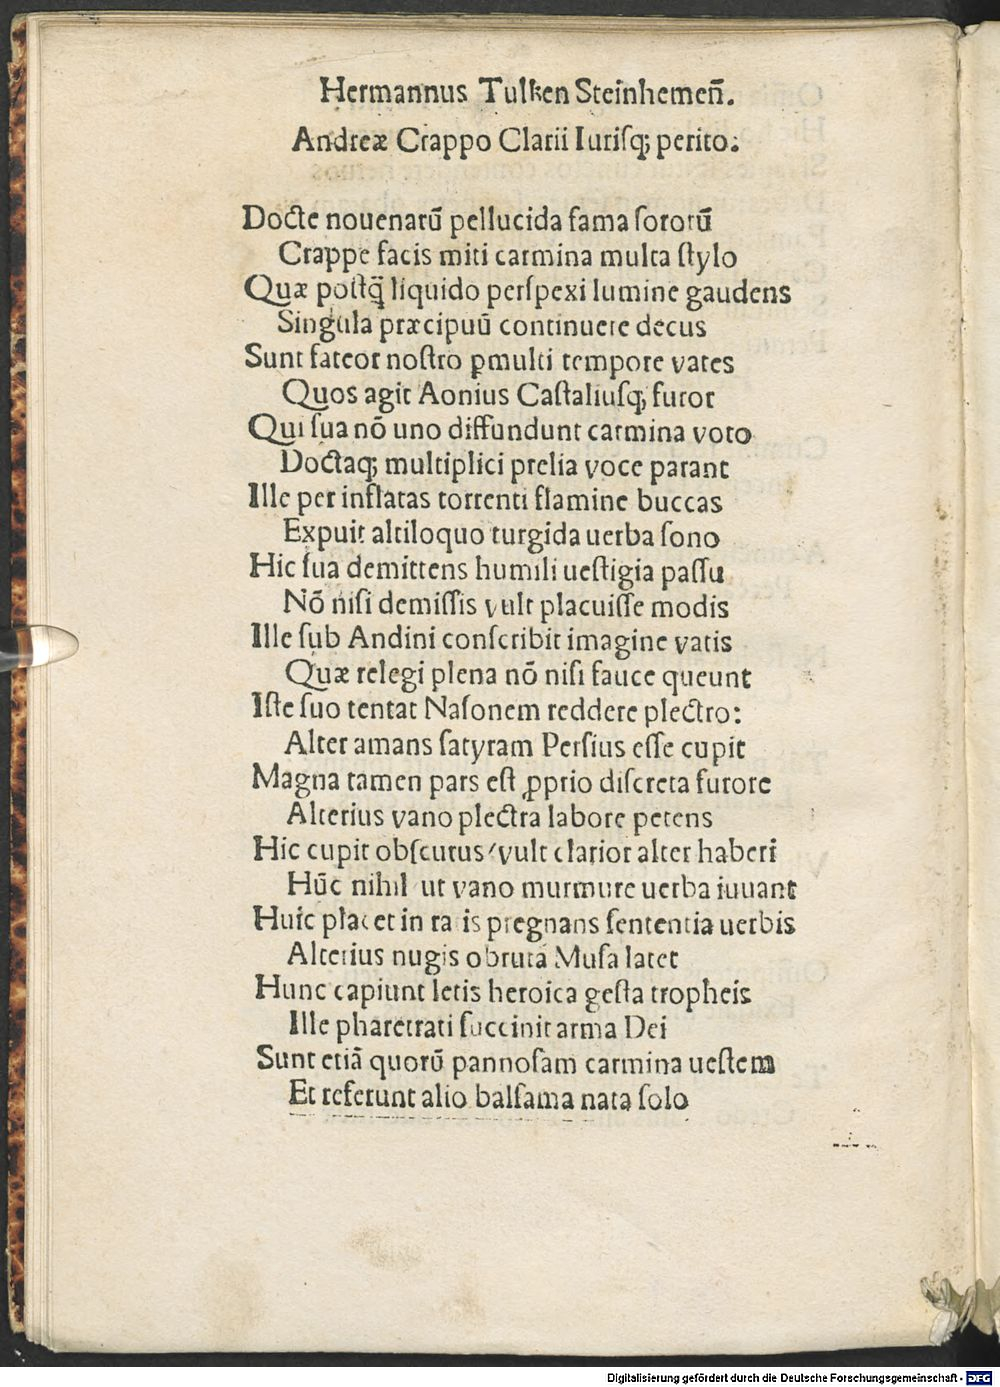 Hermannus Tulken Steinhemen̄.
Andreæ Crappo Clarii Iurisq; perito:
Docte nouenarū pellucida fama ſororū
Crappe facis miti carmina multa ſtylo
Quæ poſtq̄ liquido perſpexi lumine gaudens
Singula præcipuū continuere decus
Sunt fateor noſtro ꝑmulti tempore vates
Quos agit Aonius Caſtaliuſq; furor
Qui ſua nō uno diffundunt carmina voto
Doctaq; multiplici prelia voce parant
Ille per inflatas torrenti flamine buccas
Expuit altiloquo turgida uerba ſono
Hic ſua demittens humili ueſtigia paſſu
Nō niſi demiſſis vult placuiſſe modis
Ille ſub Andini conſcribit imagine vatis
Quæ relegi plena nō niſi fauce queunt
Iſte ſuo tentat Naſonem reddere plectro:
Alter amans ſatyram Perſius eſſe cupit
Magna tamen pars eſt ꝓprio diſcreta furore
Alterius vano plectra labore petens
Hic cupit obſcurus/vult clarior alter haberi
Hūc nihil ut vano murmure uerba iuuant
Huic placet in raris pregnans ſententia uerbis
Alterius nugis obruta Muſa latet
Hunc capiunt letis heroica geſta tropheis
Ille pharetrati ſuccinit arma Dei
Sunt etiā quorū pannoſam carmina ueſtem
Et referunt alio balſama nata ſolo
Digitalisierung gefördert durch die Deutsche Forschungsgemeinschaft - DFG